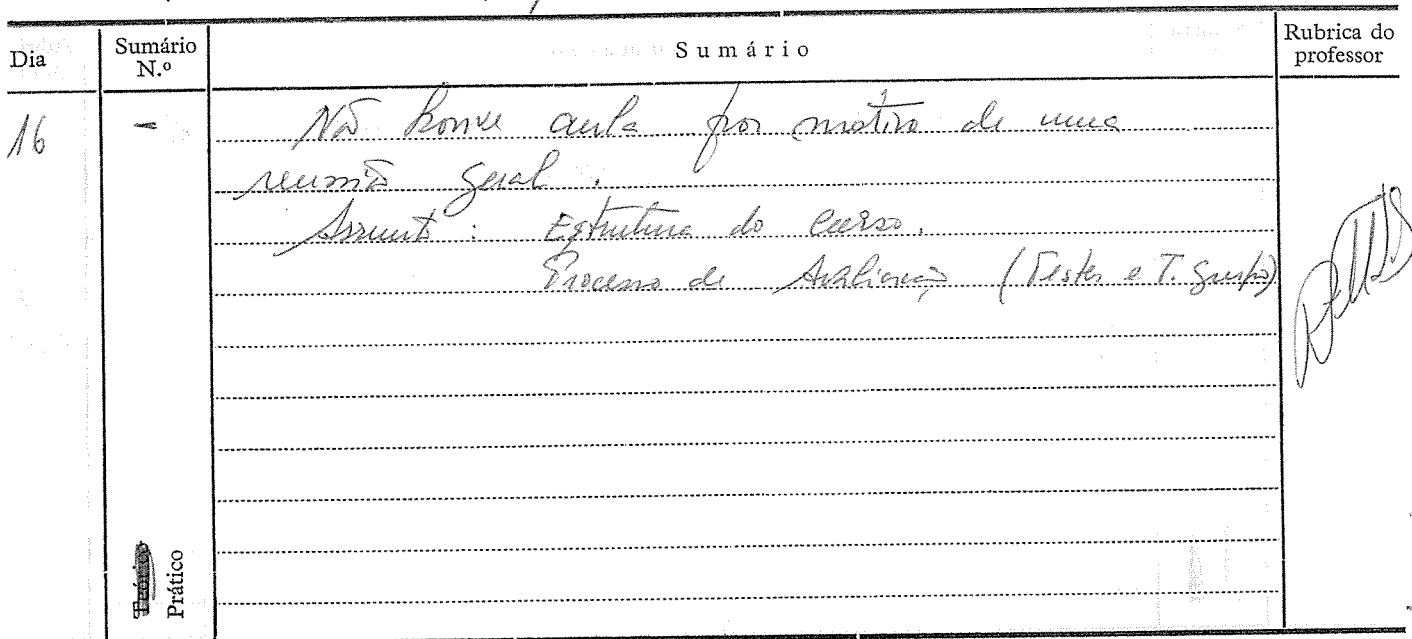 Dia Sumário N.º Sumário Rubrica do professor
16 - Não houve aula por motivo de uma
reunião geral.
Assunto: Estrutura do Curso.
Processo de Avaliação (Testes e T. Grupo)
Teórico
Prático